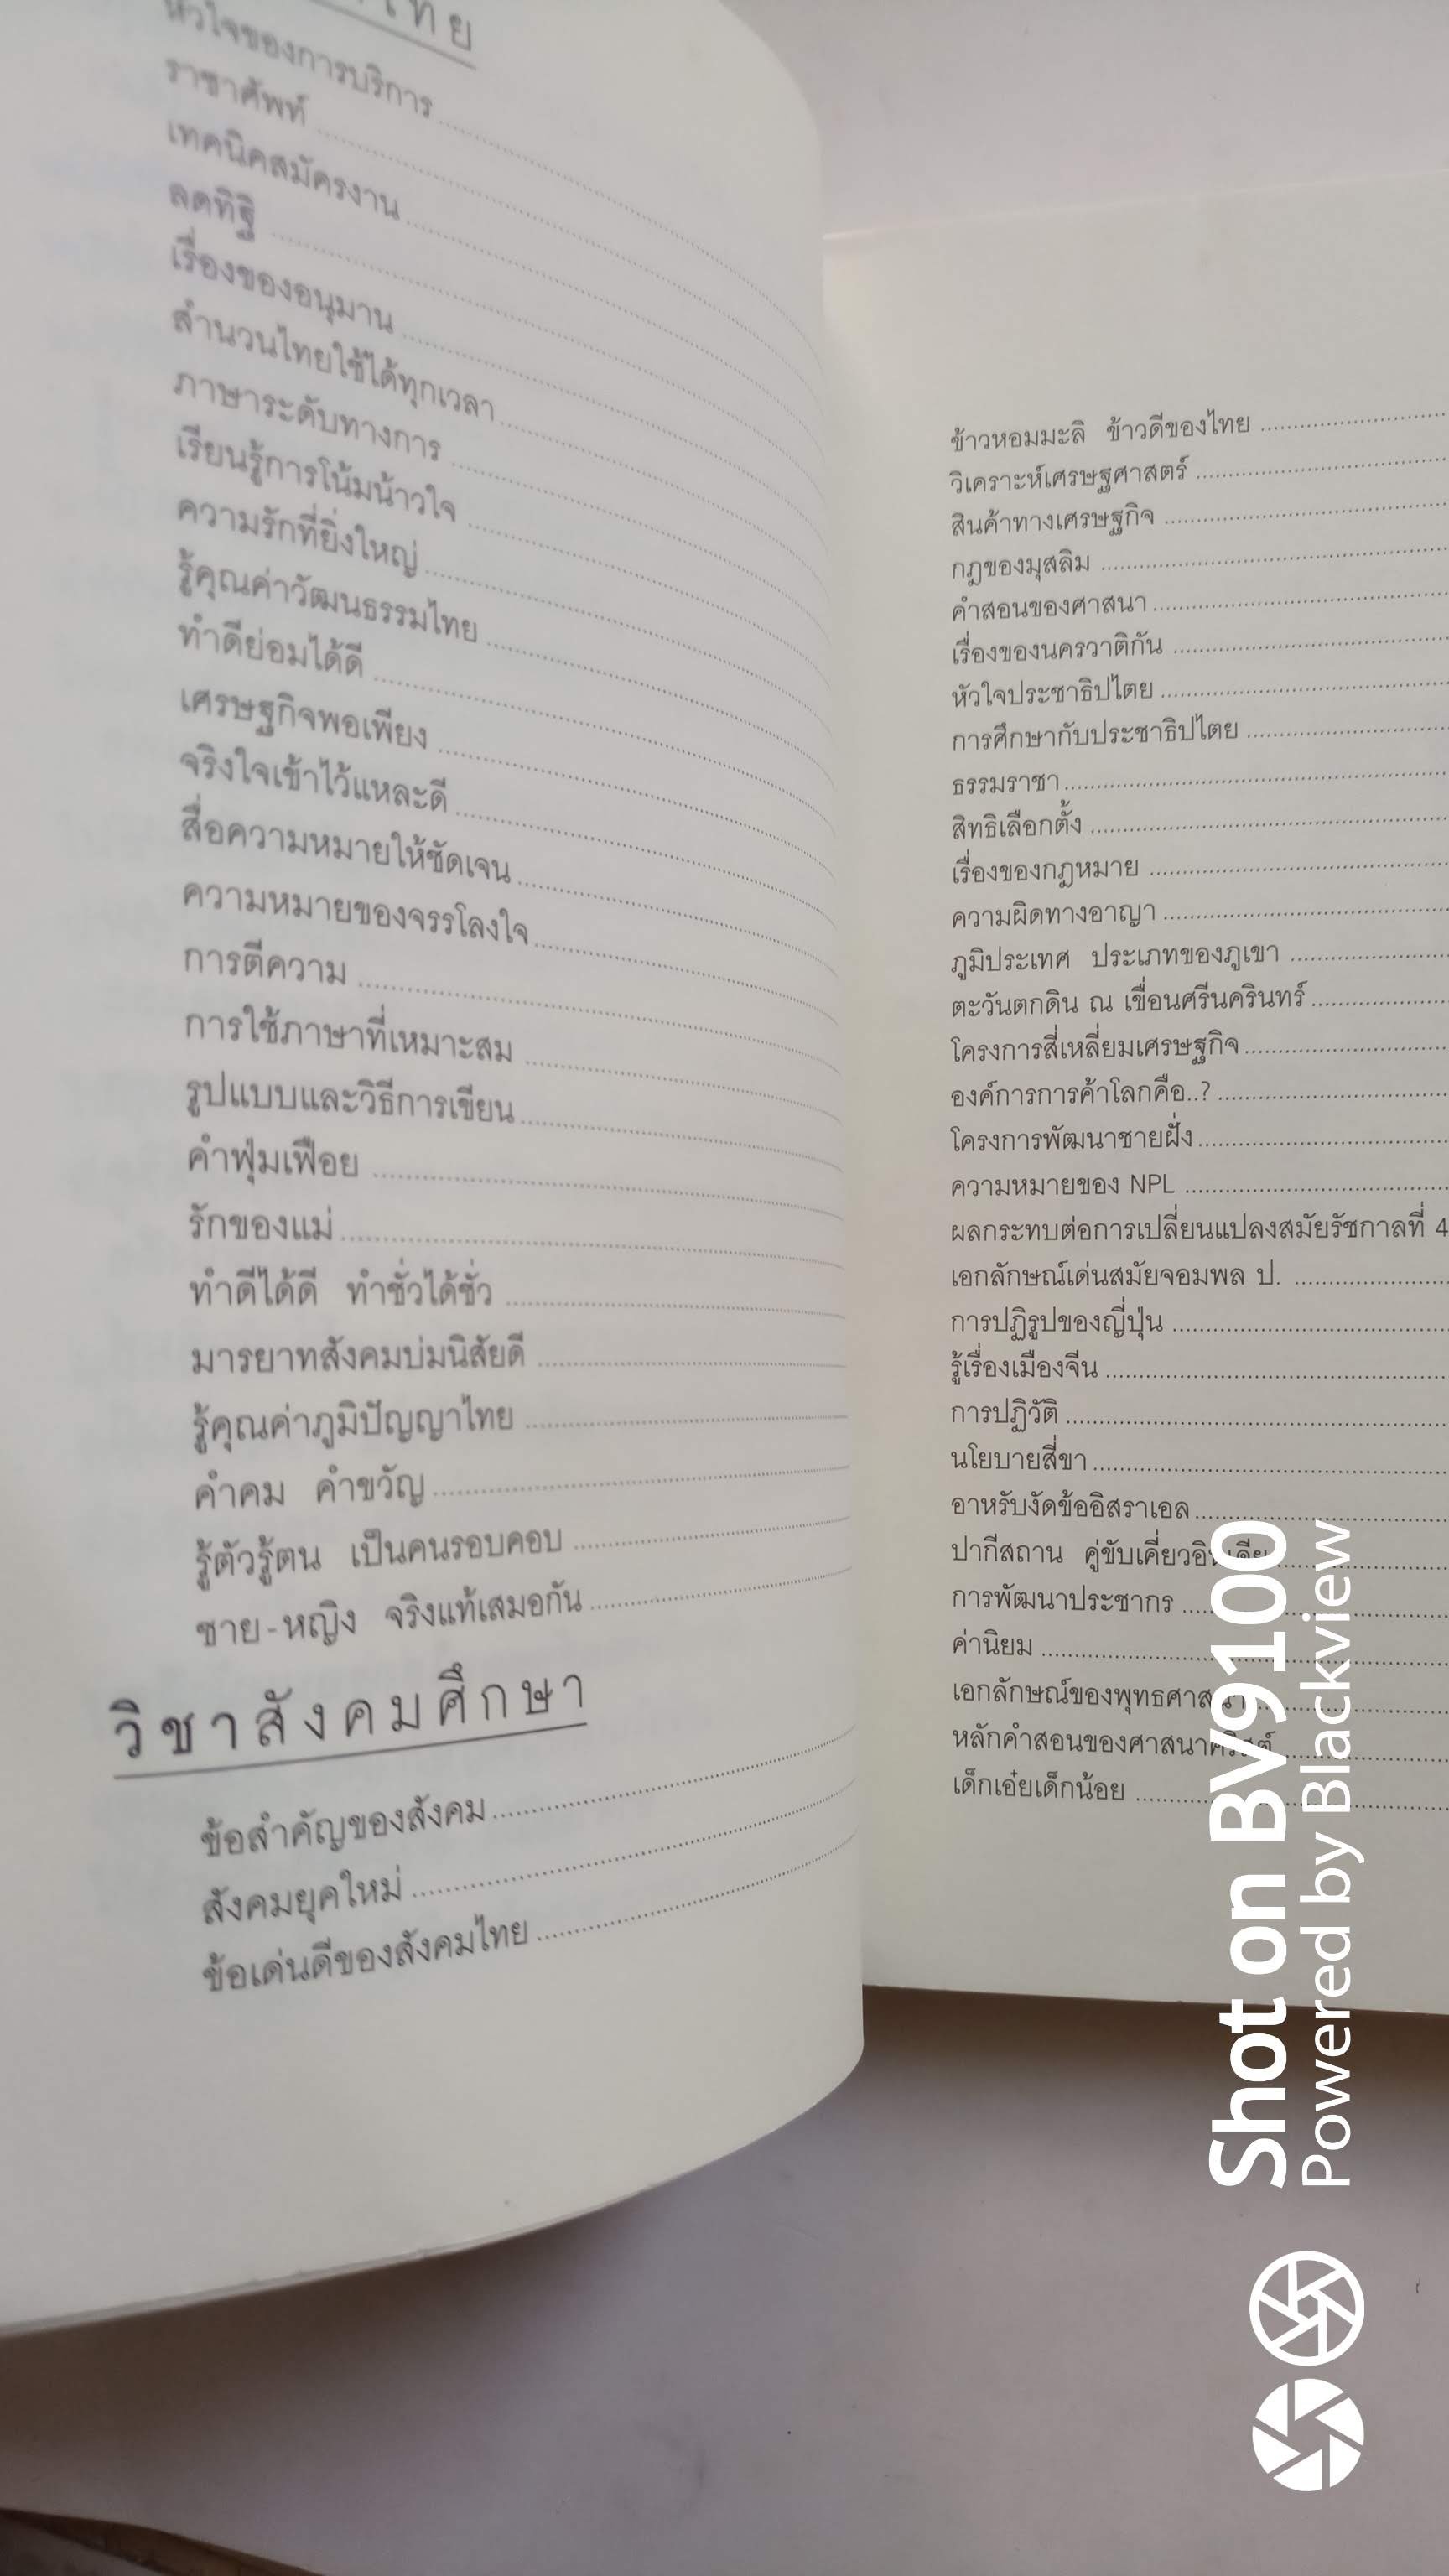 ไทย
หัวใจของการบริการ
ราชาศัพท์
เทคนิคสมัครงาน
ลดทิฐิ
เรื่องของอนุมาน
สำนวนไทยใช้ได้ทุกเวลา
ภาษาระดับทางการ
เรียนรู้การโน้มน้าวใจ
ความรักที่ยิ่งใหญ่
รู้คุณค่าวัฒนธรรมไทย
ทำดีย่อมได้ดี
เศรษฐกิจพอเพียง
จริงใจเข้าไว้แหละดี
สื่อความหมายให้ชัดเจน
ความหมายของจรรโลงใจ
การตีความ
การใช้ภาษาที่เหมาะสม
รูปแบบและวิธีการเขียน
คำฟุ่มเฟือย
รักของแม่
ทำดีได้ดี ทำชั่วได้ชั่ว
มารยาทสังคมบ่มนิสัยดี
รู้คุณค่าภูมิปัญญาไทย
คำคม คำขวัญ
รู้ตัวรู้ตน เป็นคนรอบคอบ
ชาย-หญิง จริงแท้เสมอกัน
วิชาสังคมศึกษา
ข้อสำคัญของสังคม
สังคมยุคใหม่
ข้อเด่นดีของสังคมไทย
ข้าวหอมมะลิ ข้าวดีของไทย
วิเคราะห์เศรษฐศาสตร์
สินค้าทางเศรษฐกิจ
กฎของมุสลิม
คำสอนของศาสนา
เรื่องของนครวาติกัน
หัวใจประชาธิปไตย
การศึกษากับประชาธิปไตย
ธรรมราชา
สิทธิเลือกตั้ง
เรื่องของกฎหมาย
ความผิดทางอาญา
ภูมิประเทศ ประเภทของภูเขา
ตะวันตกดิน ณ เขื่อนศรีนครินทร์
โครงการสี่เหลี่ยมเศรษฐกิจ
องค์การการค้าโลกคือ..?
โครงการพัฒนาชายฝั่ง
ความหมายของ NPL
ผลกระทบต่อการเปลี่ยนแปลงสมัยรัชกาลที่ 4
เอกลักษณ์เด่นสมัยจอมพล ป.
การปฏิรูปของญี่ปุ่น
รู้เรื่องเมืองจีน
การปฏิวัติ
นโยบายสี่ขา
อาหรับงัดข้ออิสราเอล
ปากีสถาน คู่ขับเคี่ยวอินเดีย
การพัฒนาประชากร
ค่านิยม
เอกลักษณ์ของพุทธศาสนา
หลักคำสอนของศาสนาคริสต์
เด็กเอ๋ยเด็กน้อย
Shot on BV9100
Powered by Blackview